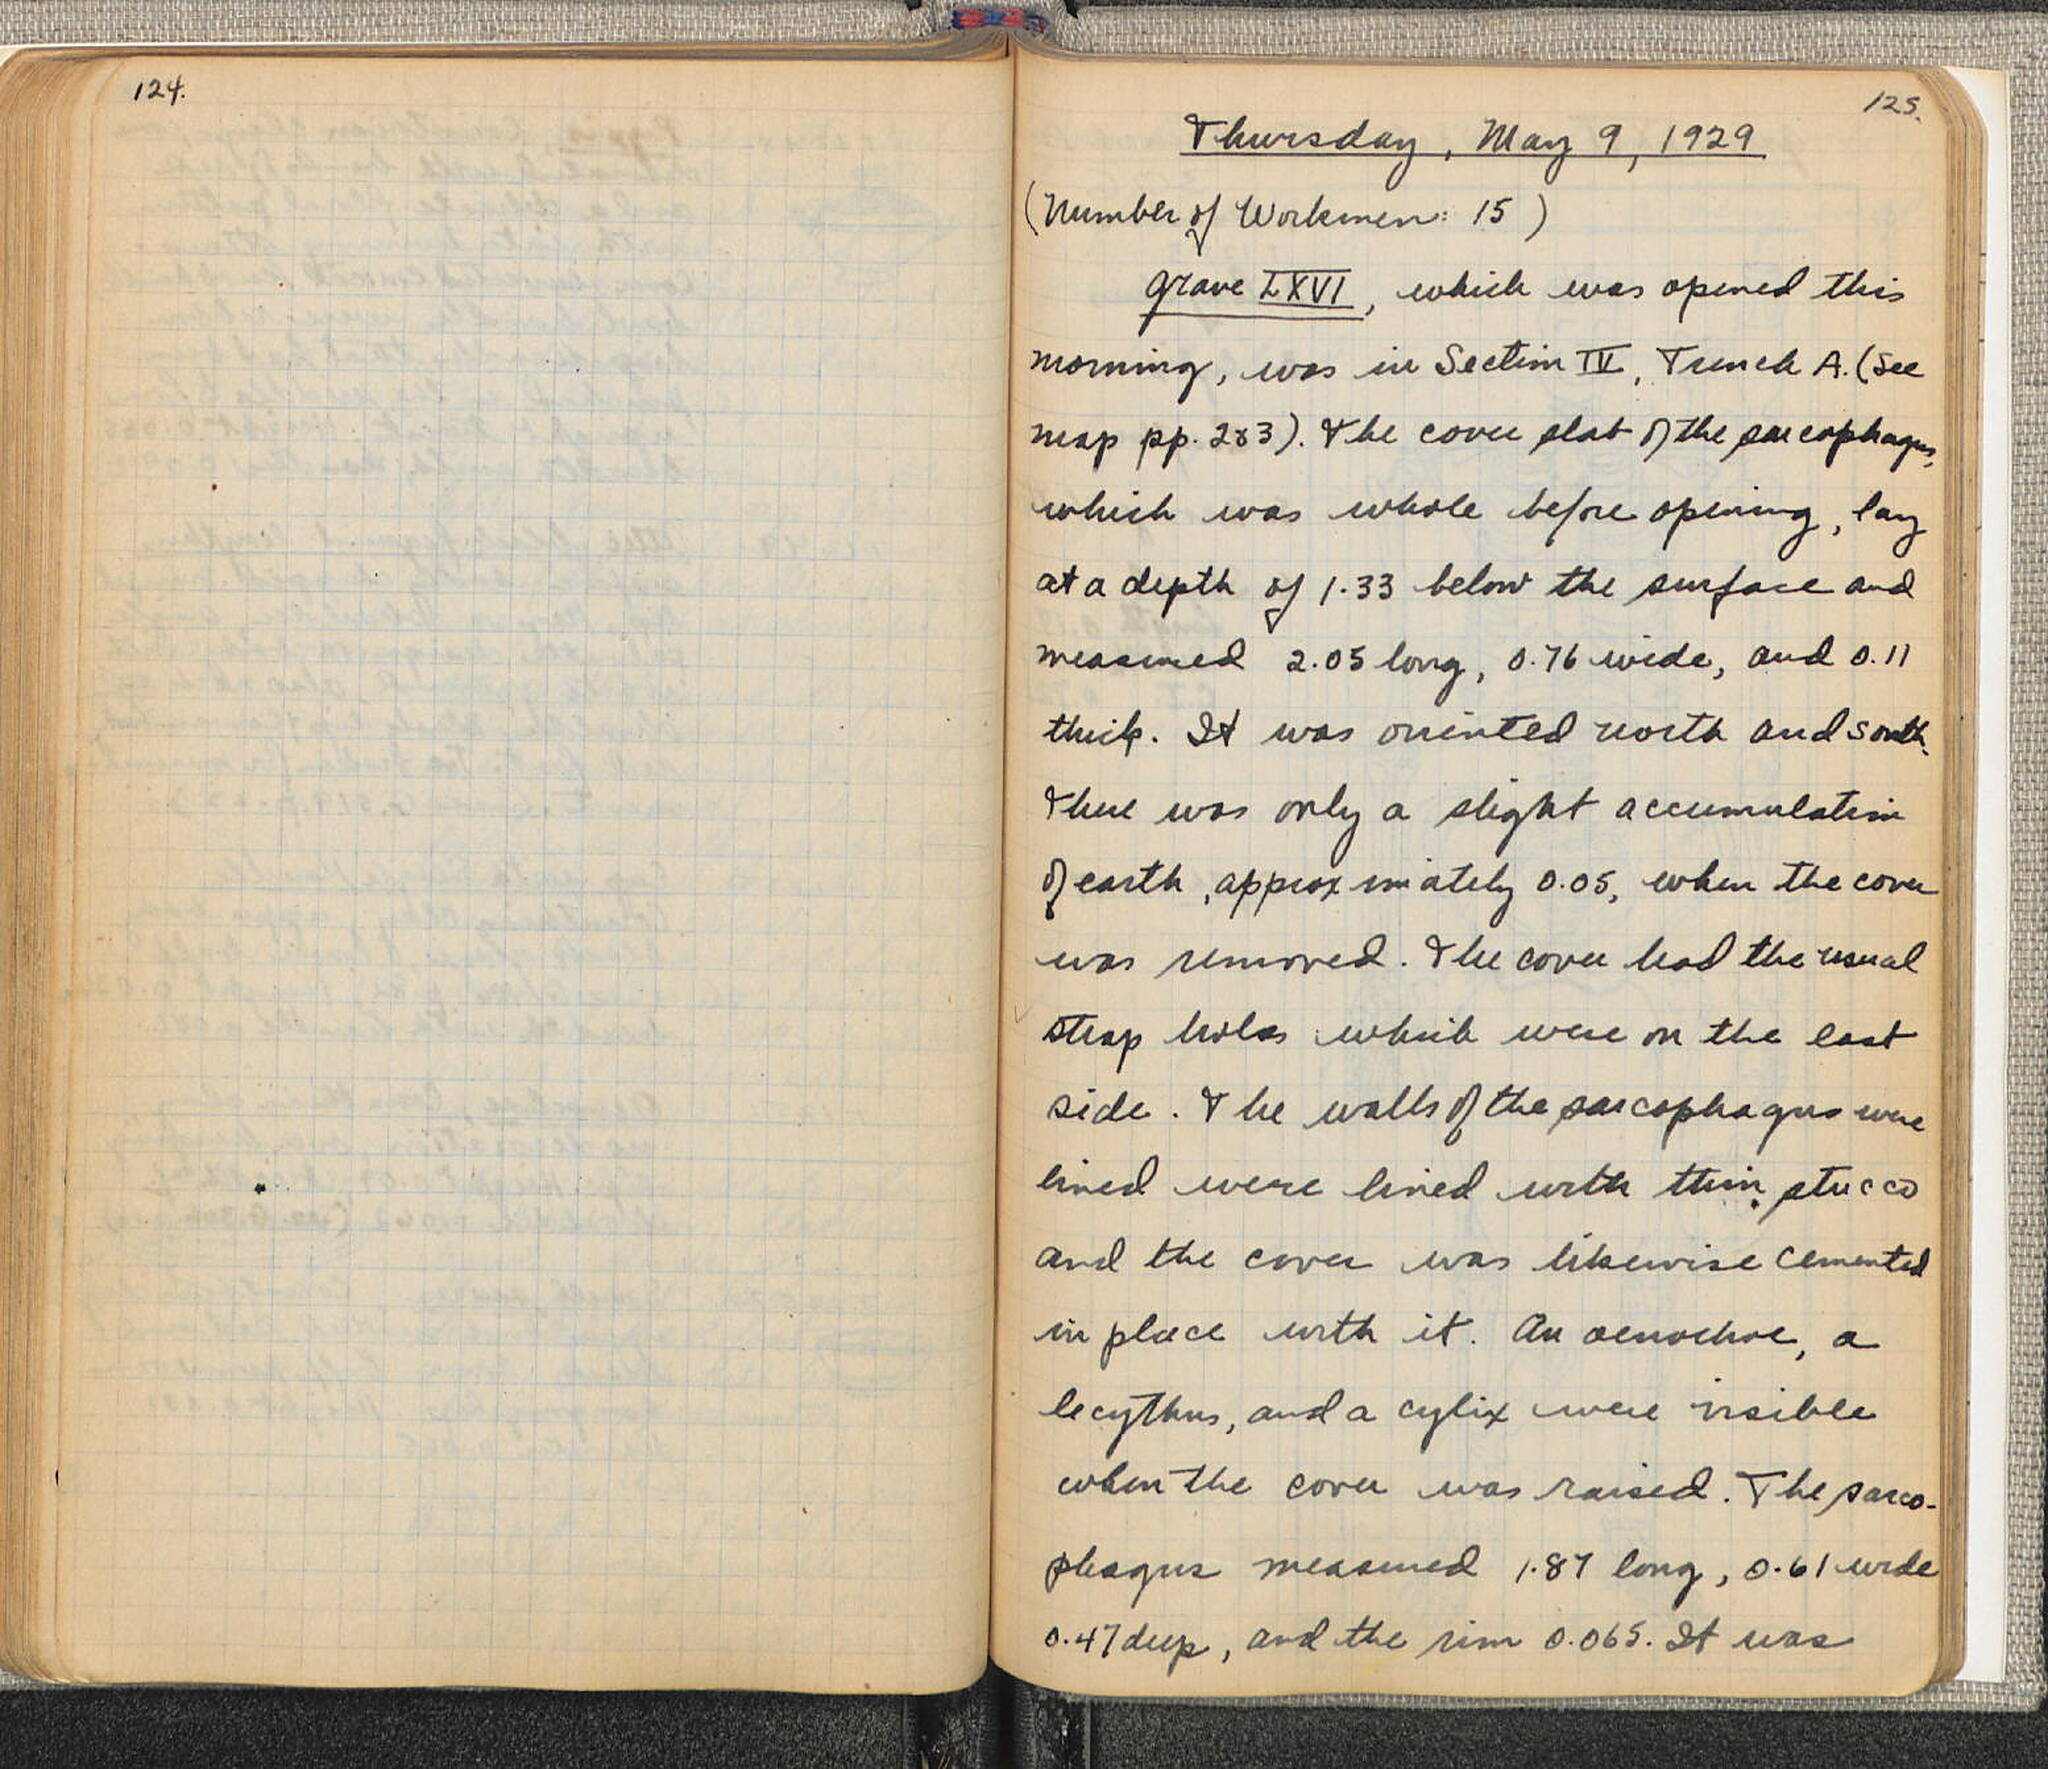 124.
125.
Thursday, May 9, 1929
(Number of Workmen: 15)
Grave LXVI, which was opened this
morning, was in Section IV, Trench A. (See
map pp. 2&3). The cover slab of the sarcophagus,
which was whole before opening, lay
at a depth of 1.33 below the surface and
measured 2.05 long, 0.76 wide, and 0.11
thick. It was oriented north and south.
There was only a slight accumulation
of earth, approximately 0.05, when the cover
was removed. The cover had the usual
strap holes which were on the east
side. The walls of the sarcophagus were
lined were lined with thin stucco
and the cover was likewise cemented
in place with it. An oenochoe, a
lecythus, and a cylix were visible
when the cover was raised. The sarco-
phagus measured 1.87 long, 0.61 wide
0.47 deep, and the rim 0.065. It was